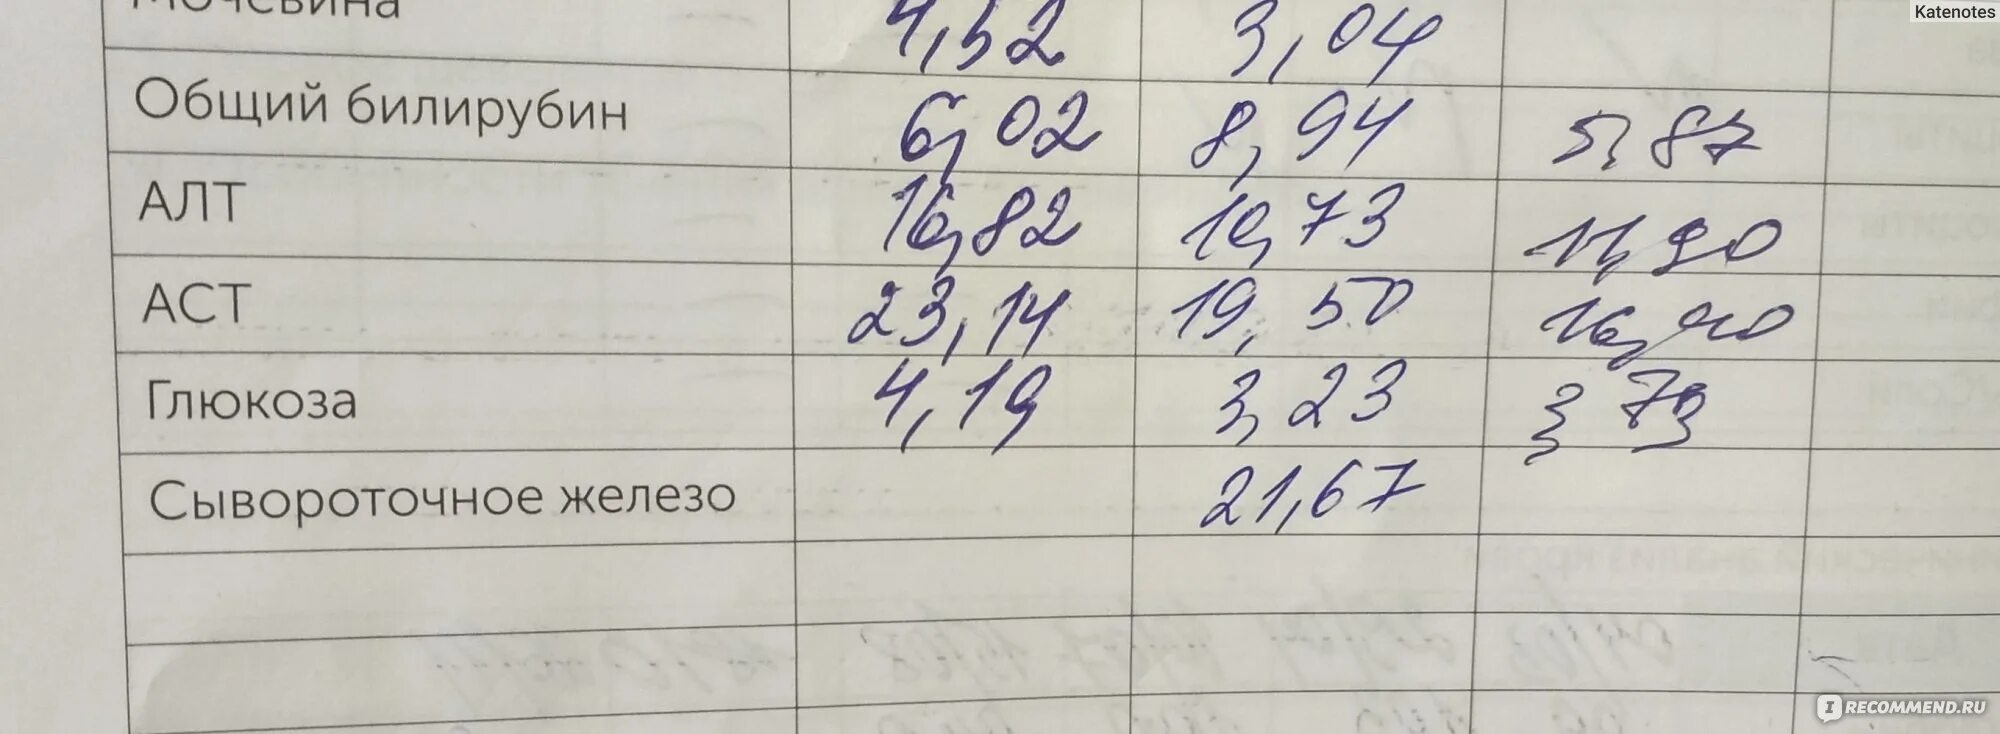 Katenotes
Мочевина 4,52 3,04
Общий билирубин 6,02 8,94 5,87
АЛТ 16,82 10,73 11,90
АСТ 23,14 19,50 16,40
Глюкоза 4,19 3,23 3,73
Сывороточное железо 21,67
IRECOMMEND.RU